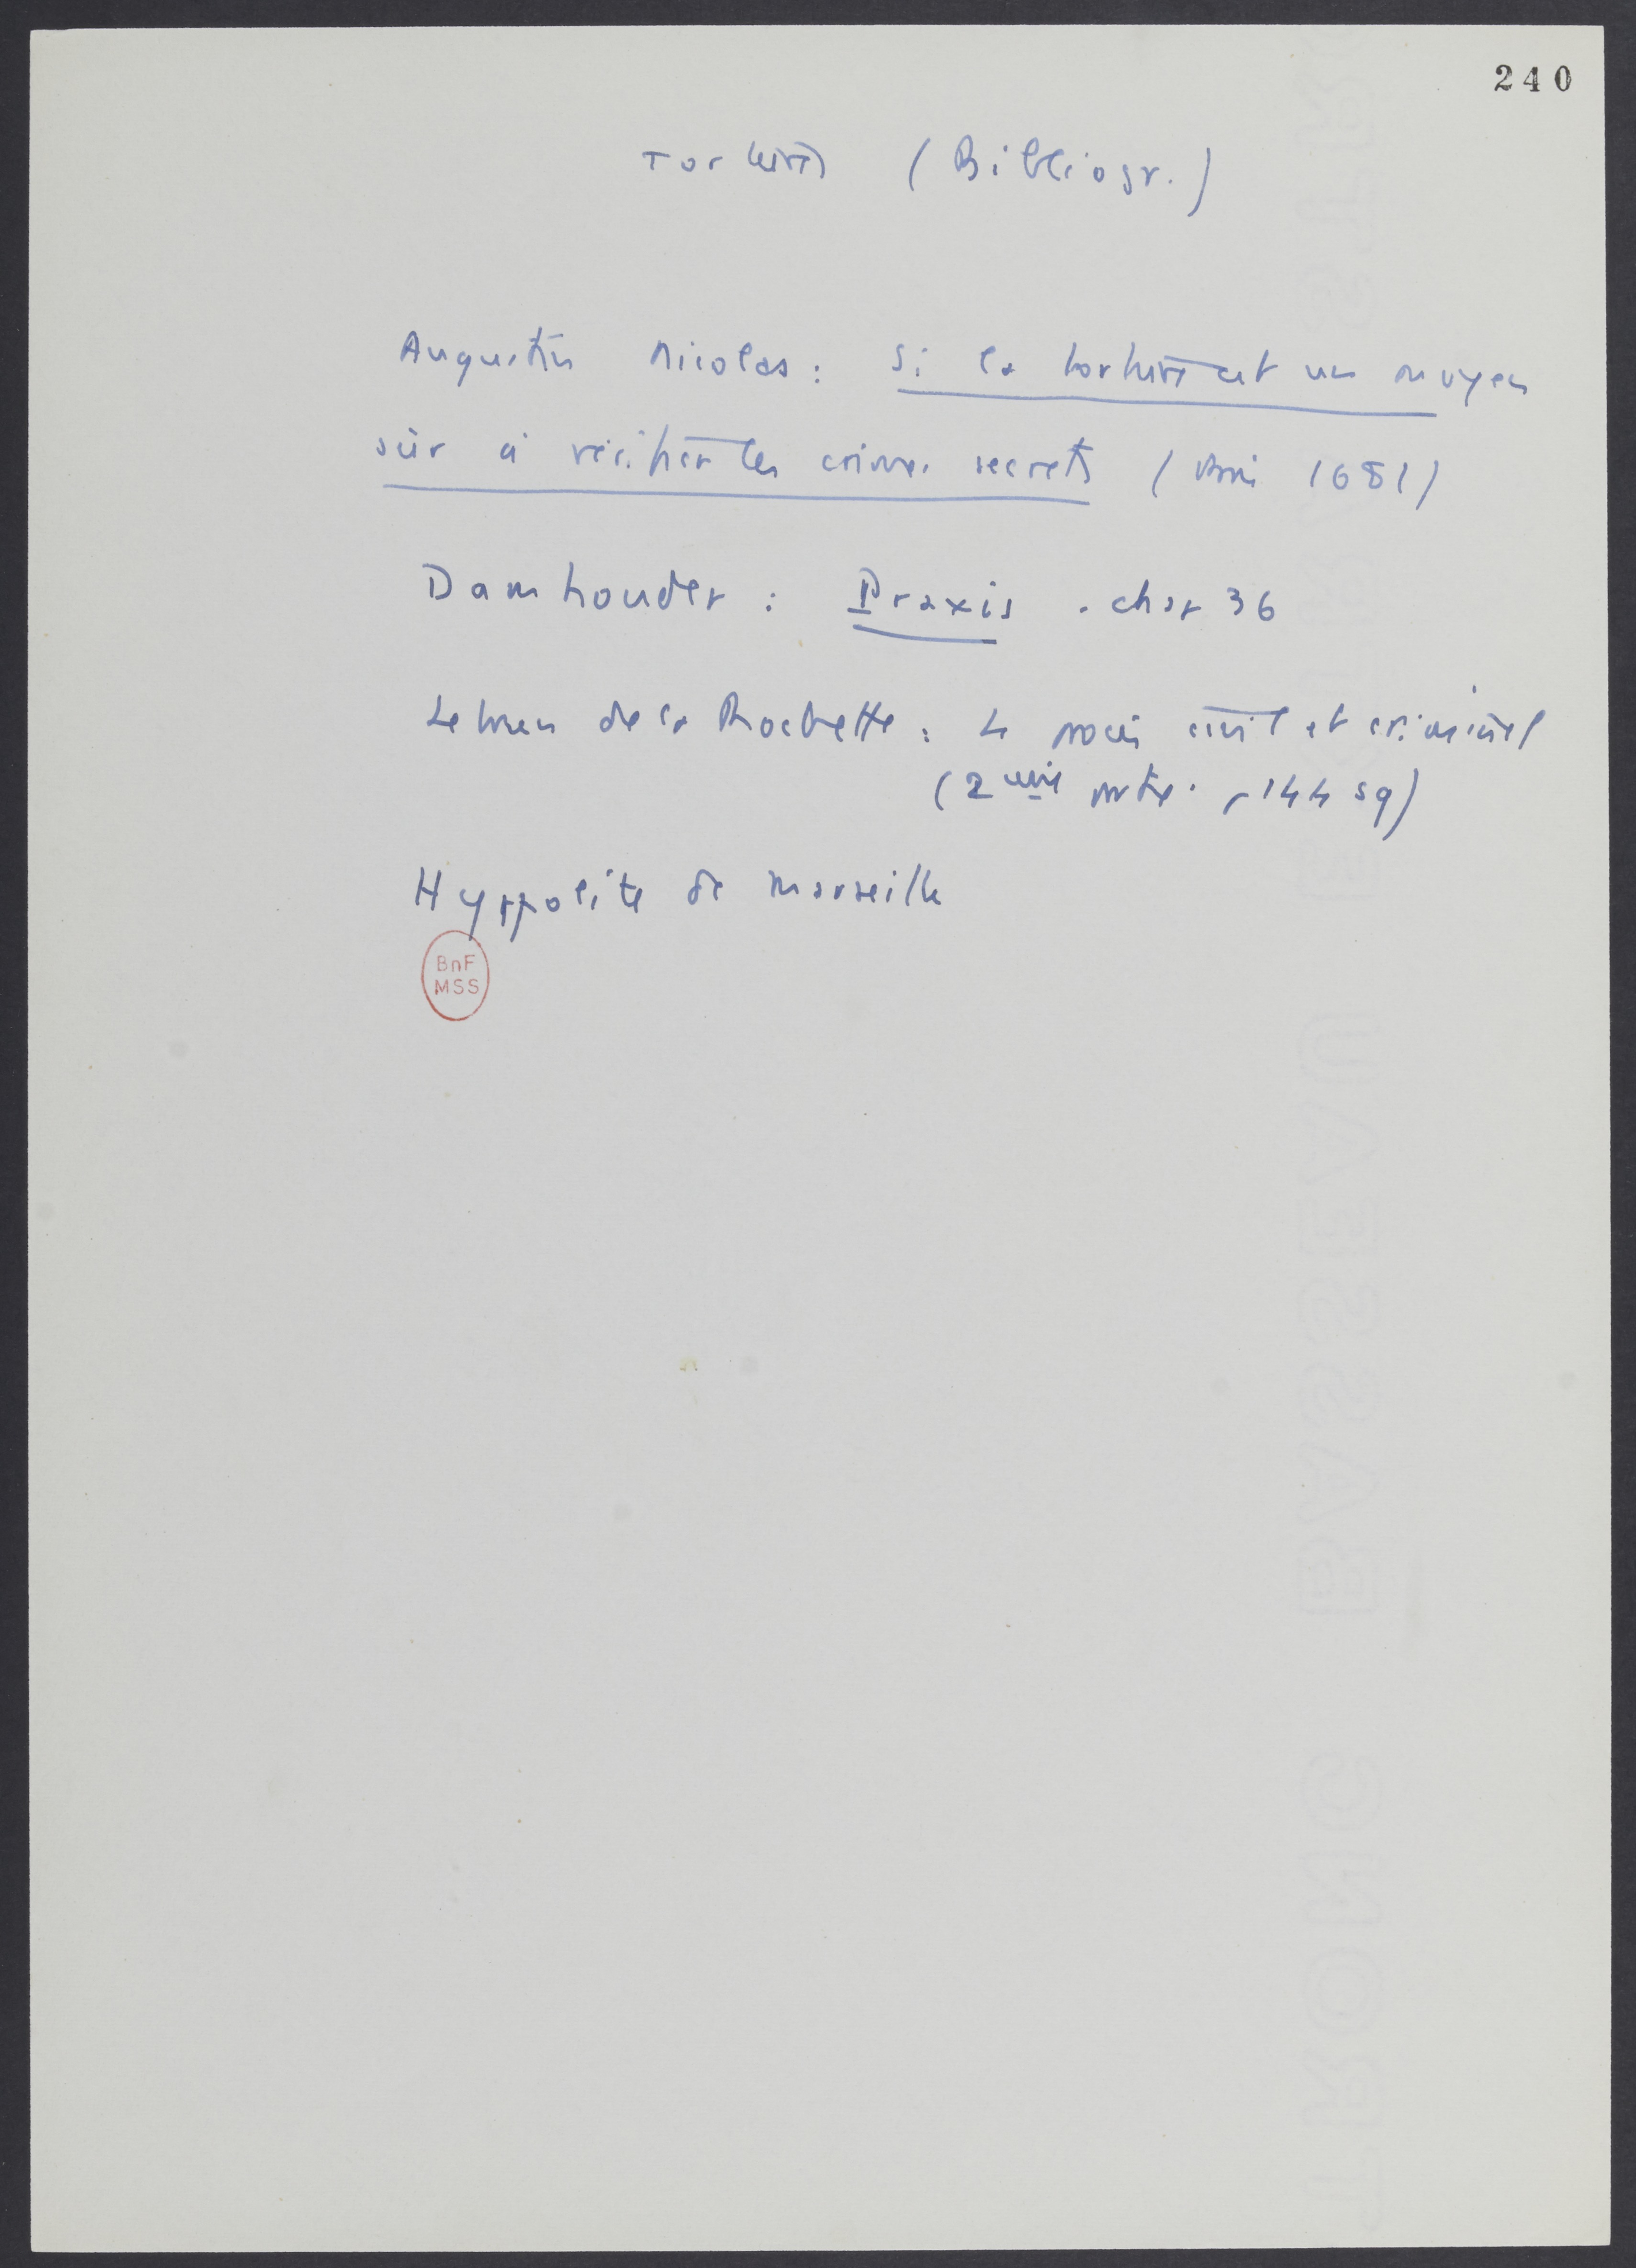 240
Torture (Bibliogr.)
Augustin Nicolas : Si la torture est un moyen
sûr à vérifier les crimes secrets (Paris 1681)
Damhouder : Praxis . chap 36
Lebrun de la Rochette : Le procès civil et criminel
(2ème partie. p 144 sq)
Hyppolite de Marseille
BnF
MSS